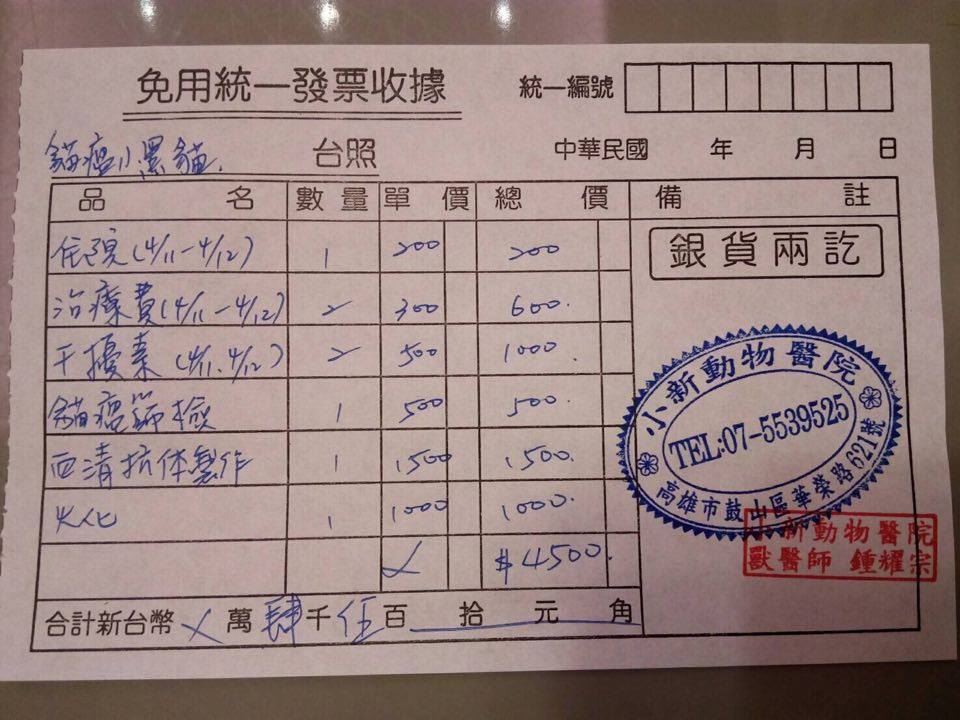 免用統一發票收據
統一編號
貓瘟小黑貓. 台照
中華民國 年 月 日
品名 數量 單價 總價 備註
住院(4/11-4/12) 1 200 200
銀貨兩訖
治療費(4/11-4/12) 2 300 600.
干擾素(4/11.4/12) 2 500 1000.
貓瘟篩檢 1 500 500.
血清抗体製作 1 1500 1500.
火化 1 1000 1000.
$4500.
合計新台幣 萬肆千伍百 拾 元 角
小新動物醫院
TEL:07-5539525
高雄市鼓山區華榮路621號
小新動物醫院
獸醫師 鍾耀宗